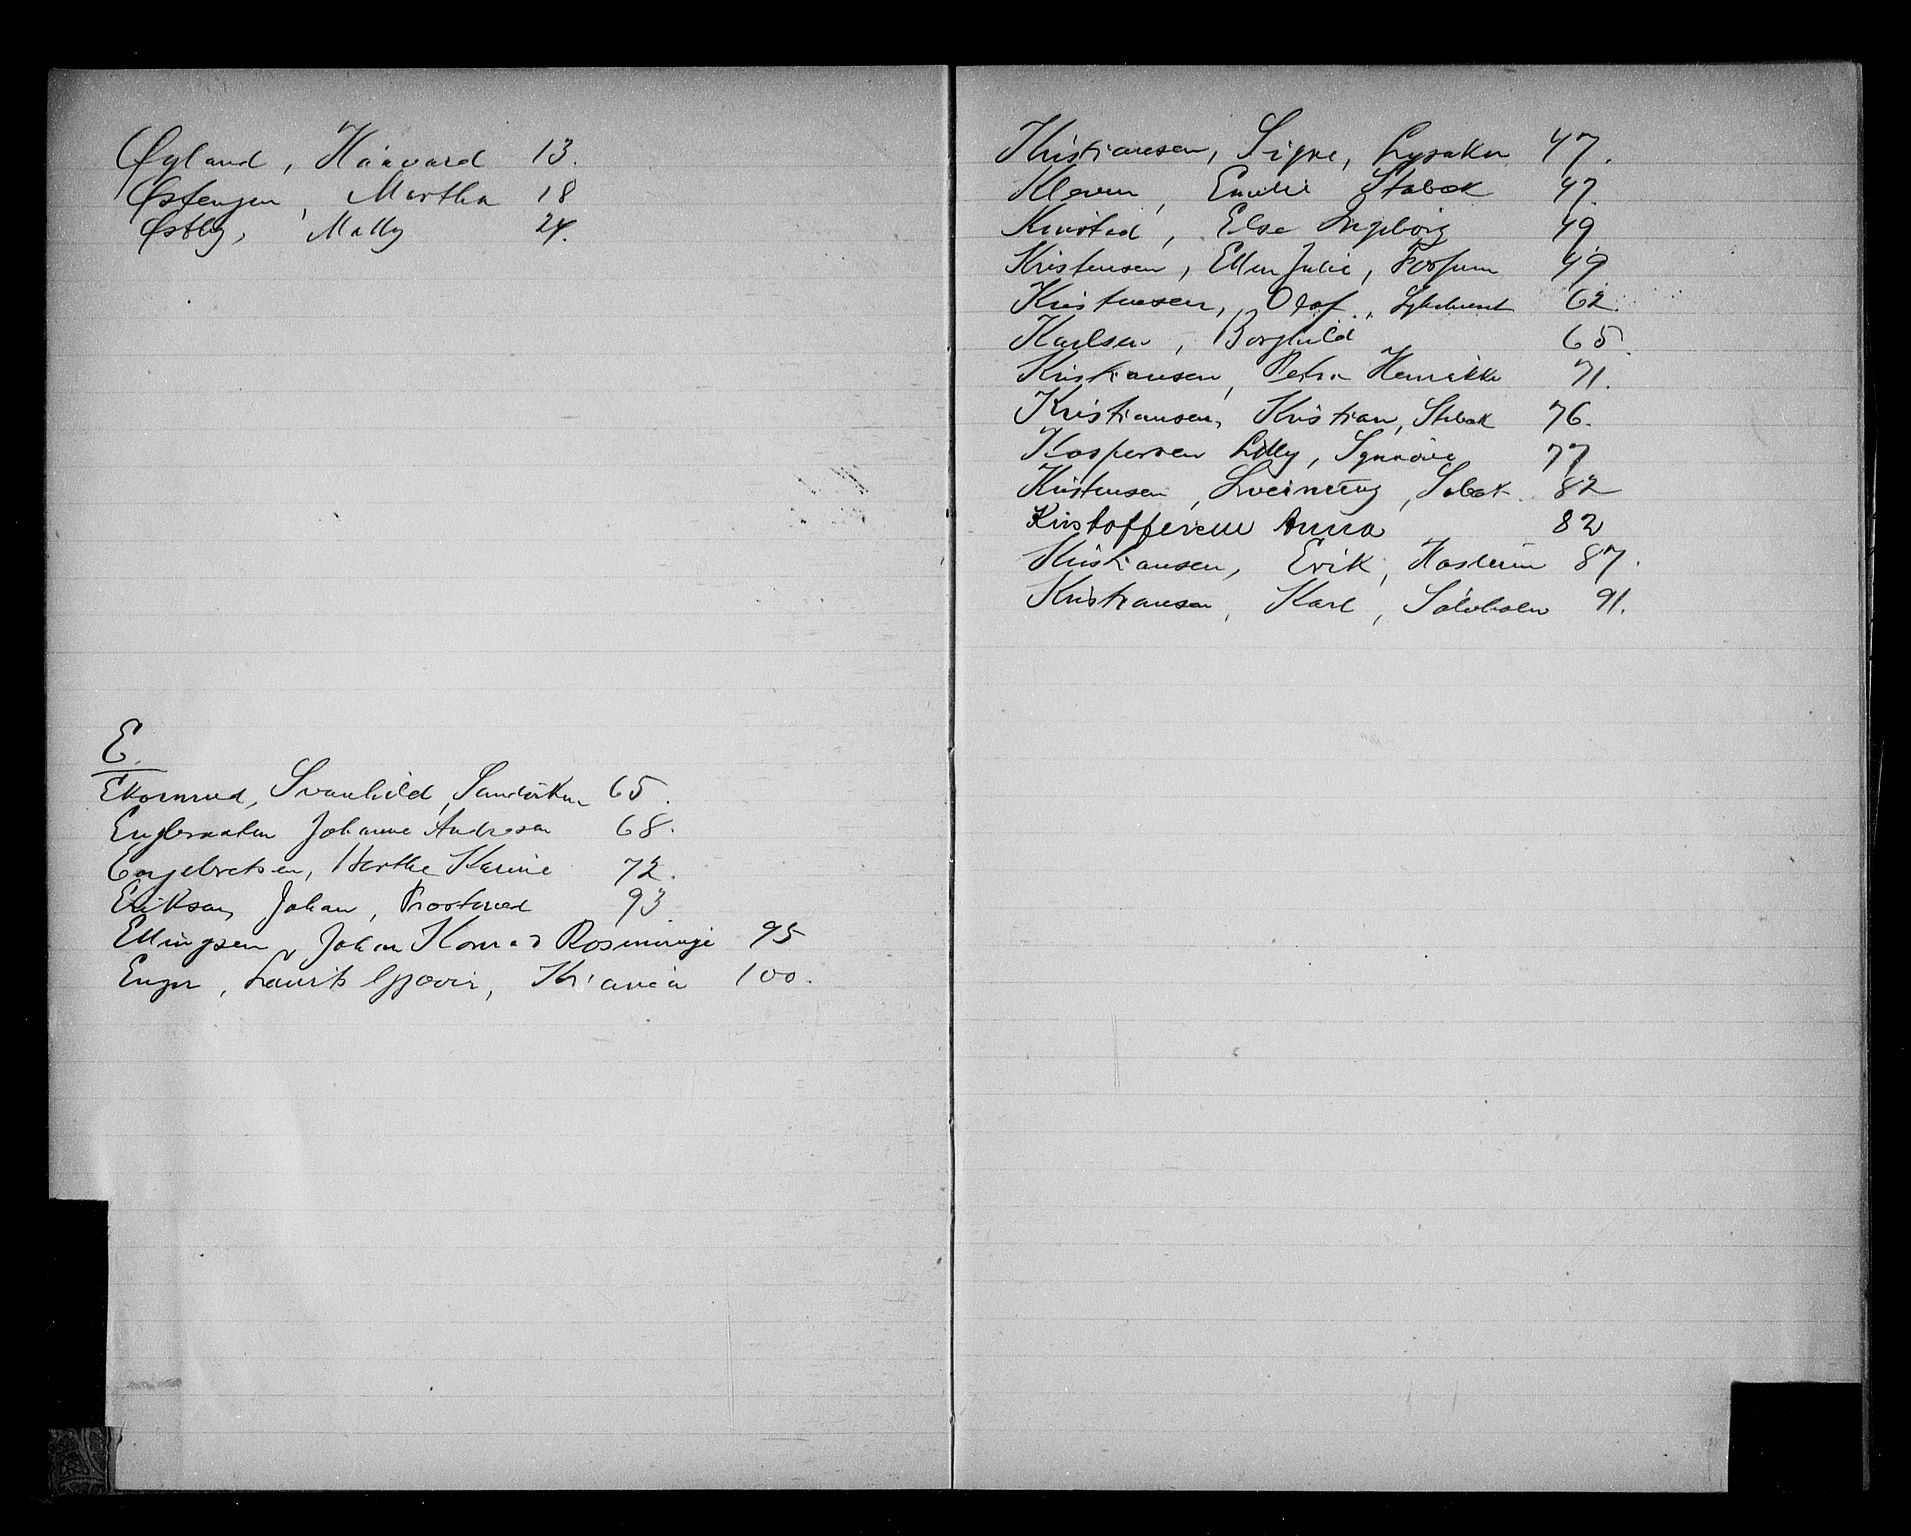 Øyland, Haavard 13.
Østengen, Martha 18
Østby, Mally 24.
E.
Ekornrud, Svanhild, Sandviken 65.
Johanne Andresen 68.
Engebretsen, Marthe Karine 72.
Eriksen, Johan, 93
Ellingsen, Johan Konrad 95
Enger, Laurits, Kr.ania 100.
Kristiansen, Signe, Lysaker 47.
Kleven, Emilie Stabæk 47.
Else Ingeborg 49.
Kristensen, Ellen Julie, Fossum 49
Kristensen, Olaf, 62.
Karlsen, Borghild 65.
Kristiansen, Petra Henrikke 71.
Kristiansen, Kristian, Stabæk 76.
Kaspersen Lilly, Synnöve 77
Kristensen, 82
Kristoffersen Anna 82
Kristiansen, Erik, Haslum 87.
Kristiansen, Karl, 91.